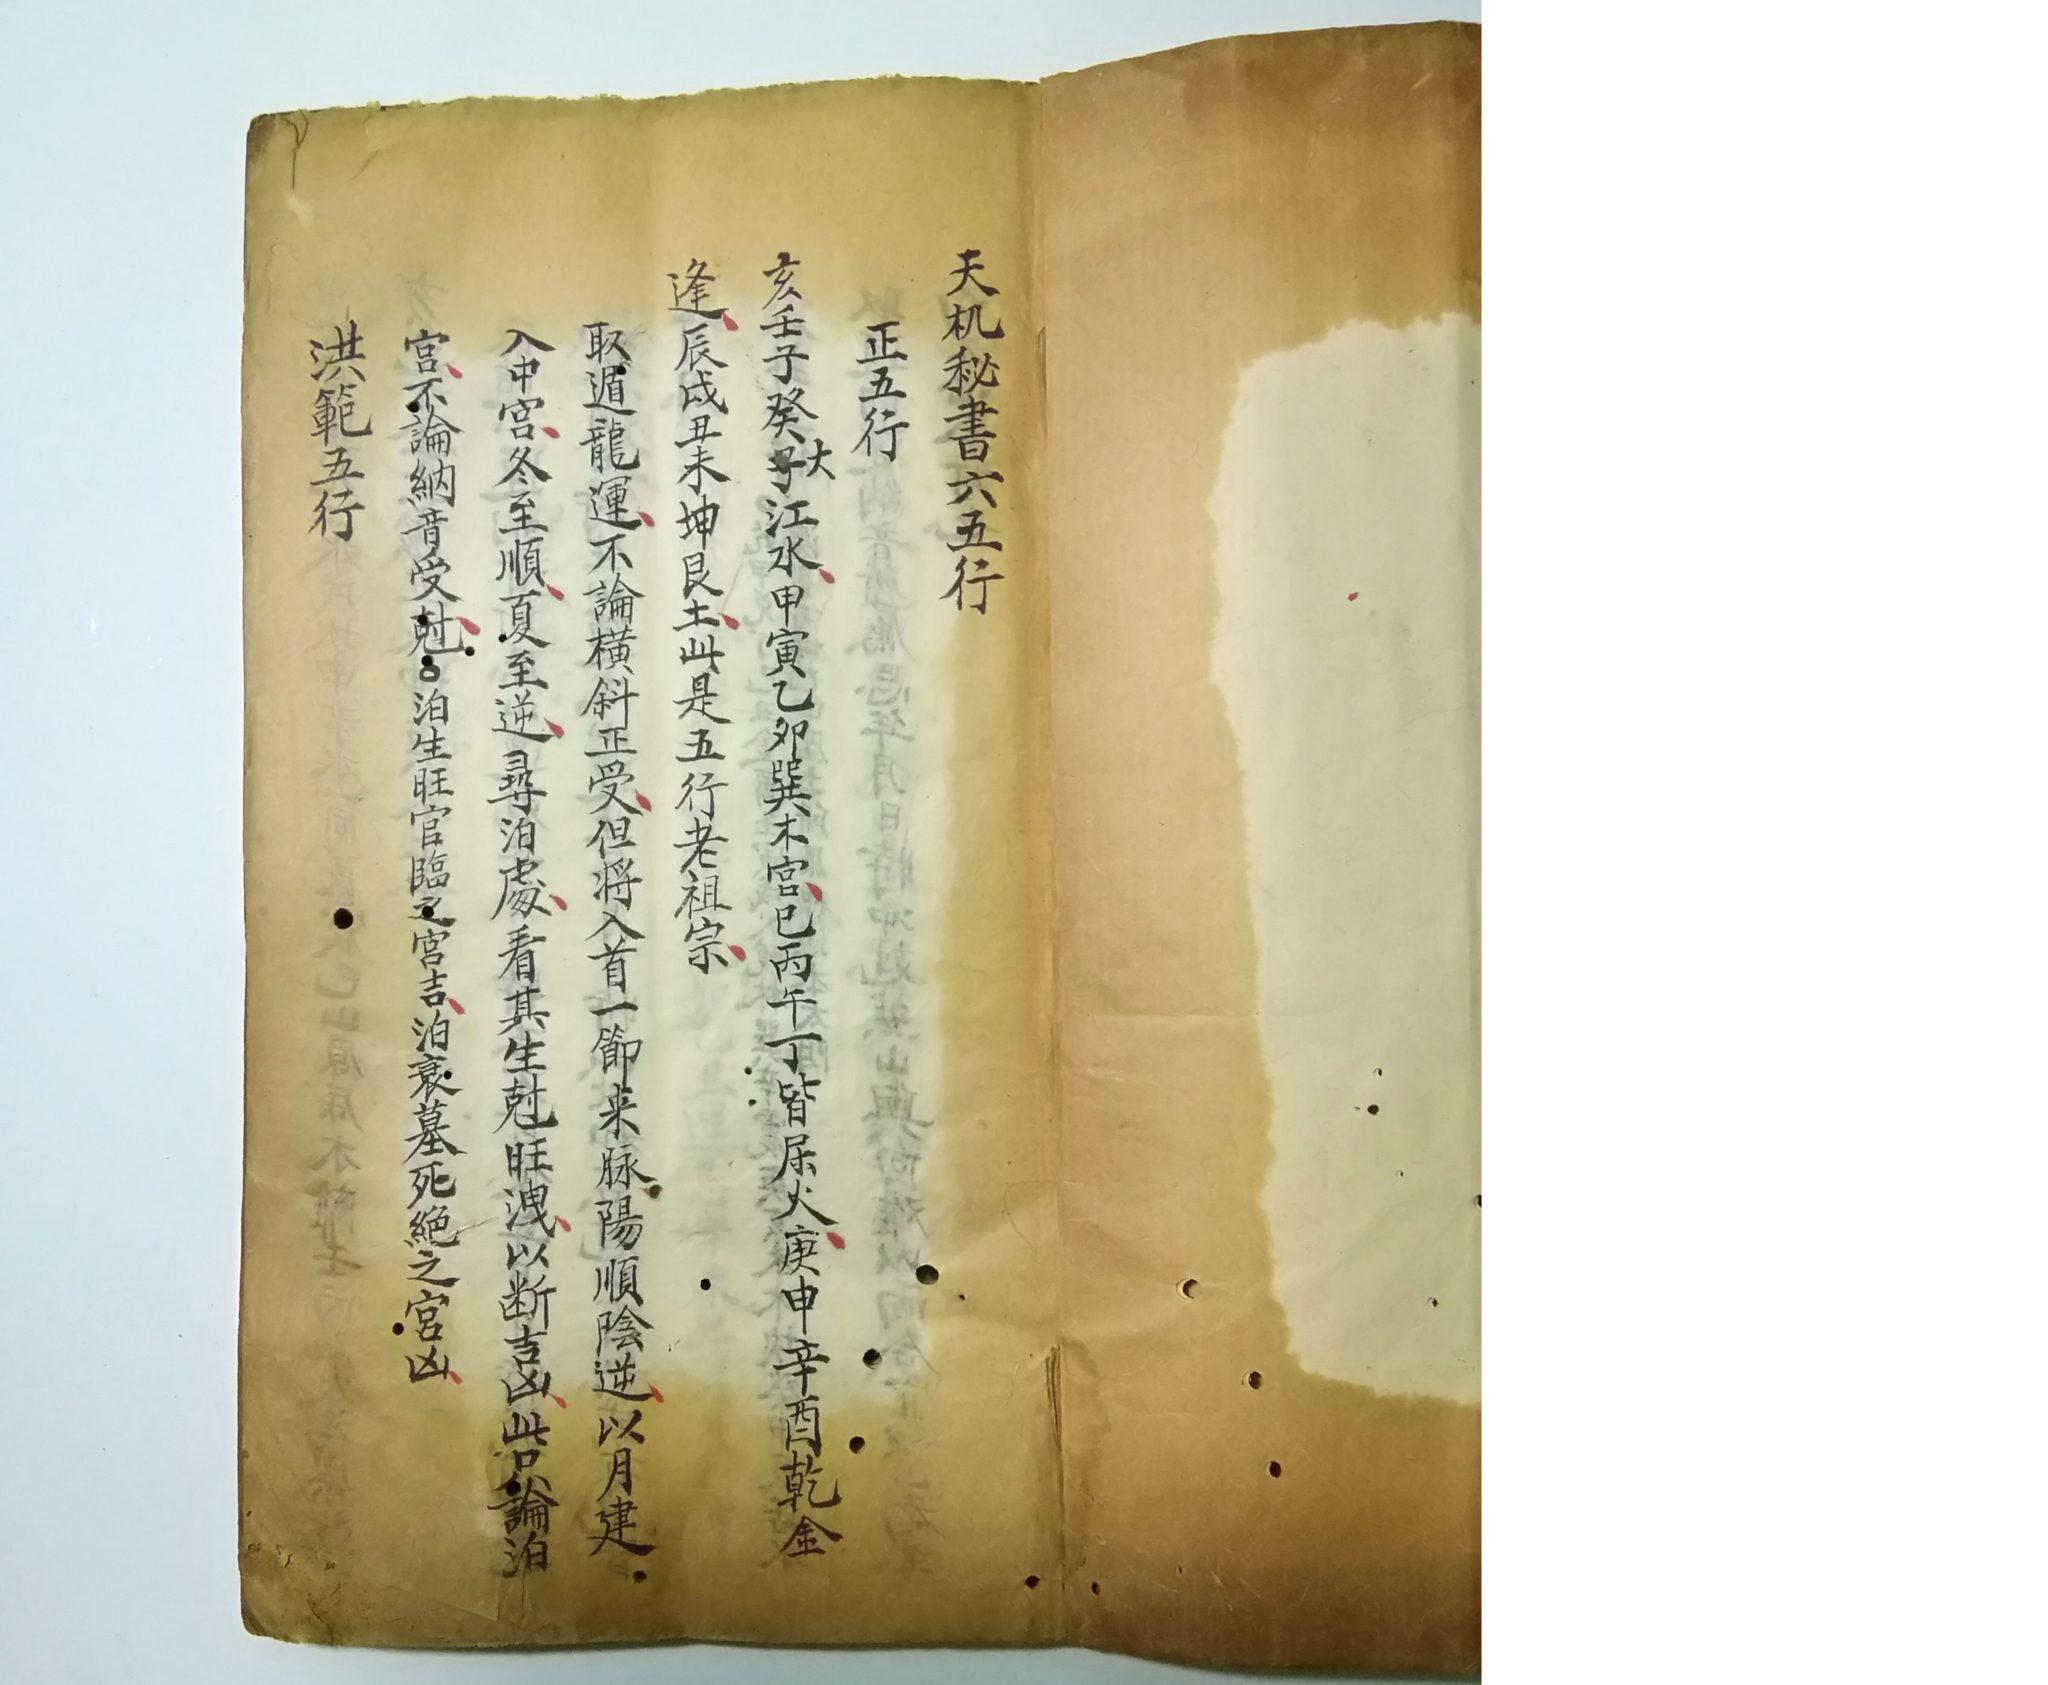 天机秘書六五行
正五行
亥壬子癸大江水、甲寅乙夘巽木宮、巳丙午丁皆屬火、庚申辛酉乾金
逢、辰戌丑未坤艮土、此是五行老祖宗、
取遁龍運、不論橫斜正受、但将入首一節来脉、陽順陰逆、以月建
入中宮、冬至順、夏至逆、尋泊處、看其生尅旺洩、以断吉凶、此只論泊
宮、不論納音受尅、泊生旺官臨之宮吉、泊衰墓死絕之宮凶、
洪範五行